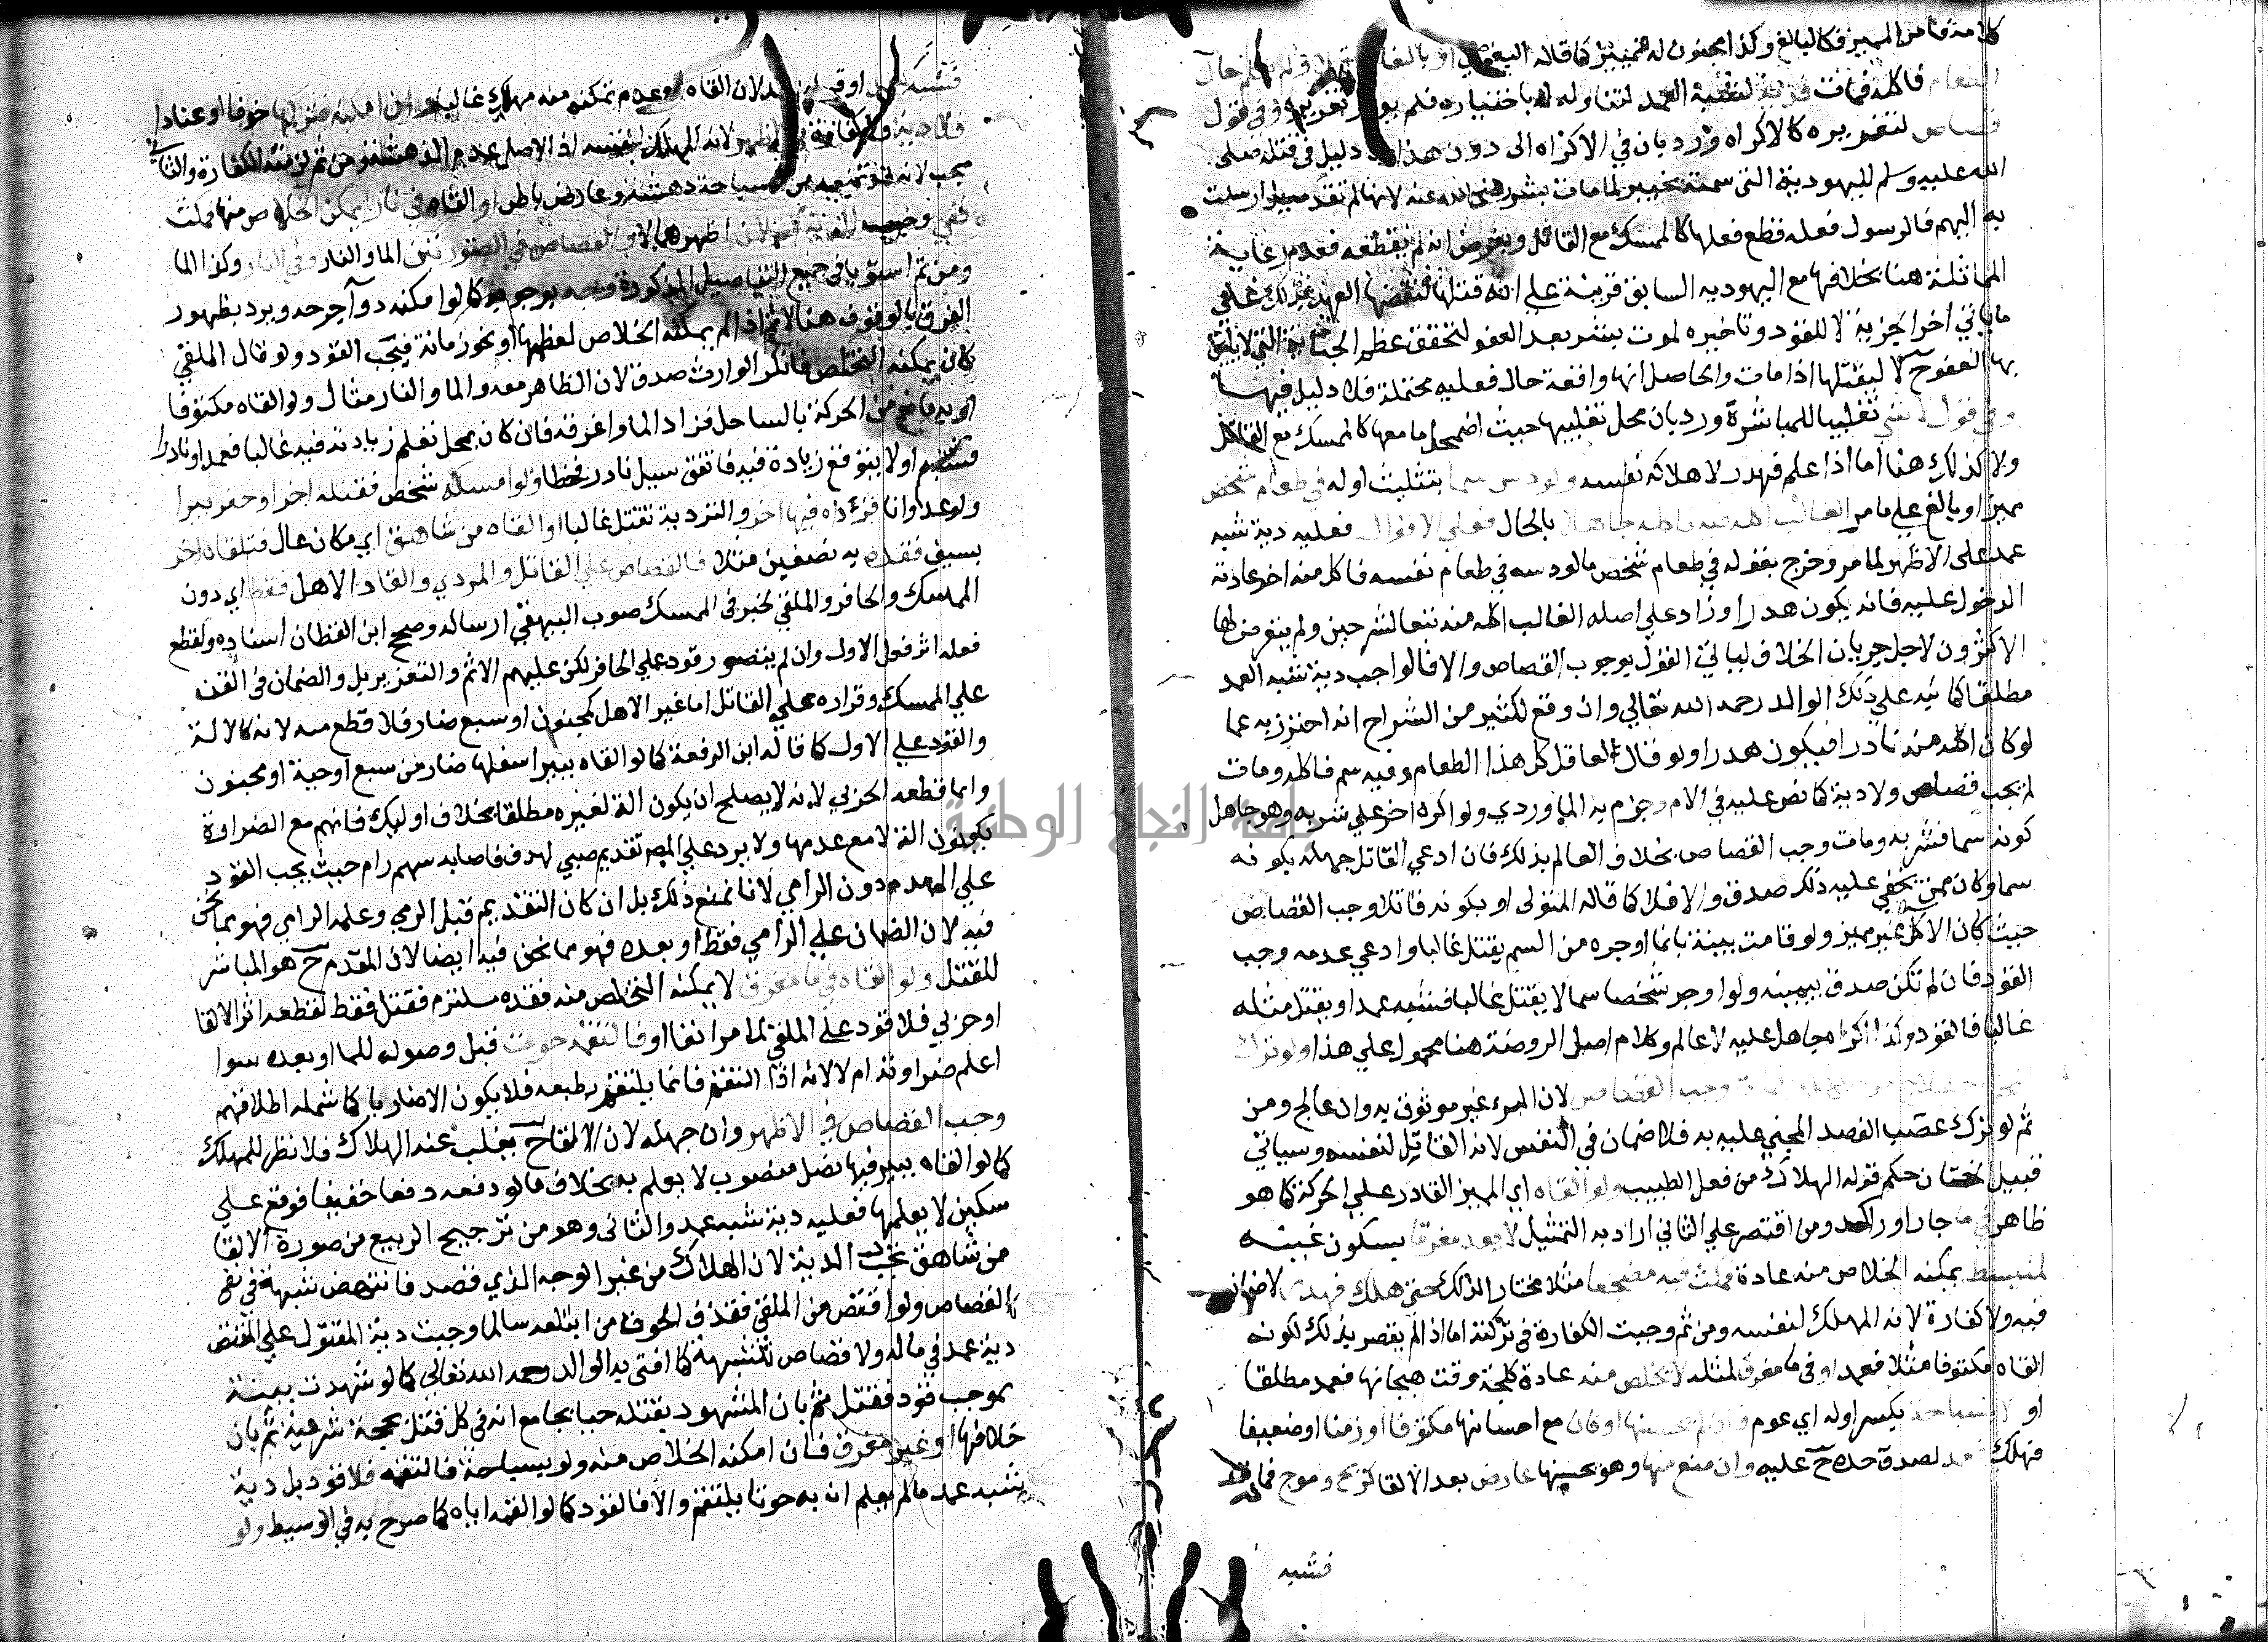 كلامه فامن المميز فكالبالغ وكذا مجنون له تمييز كما قاله البغوي او بالغا
فاكله فمات فدية لشبهة العمد لتناوله له باختياره فلم يؤثر تغريره وفي قول
قصاص لتغريره كالاكراه ورد بان في الاكراه الى دون هذا ولا دليل في قتله صلى
الله عليه وسلم لليهودية التي سمته بخيبر لما مات بشر رضي الله عنه لانها لم تقدمه بل ارسلت
به اليهم فالرسول فعله قطع فعلها كالممسك مع القاتل وبفرض انه لم يقطعه فعدم رعاية
المماثلة هنا بخلافها مع اليهودي السابق قرينة على انه قتلها لنقضها العهد بذلك على
ما ياتي اخر الجزية لا للقود وتاخيره لموت بشر بعد العفو لتحقق عظم الجناية التي لا يليق
بها العفو ح لا ليقتلها اذا مات والحاصل انها واقعة حال فعليه محتملة فلا دليل فيها
وفي قول لا شي تغليبا للمباشرة ورد بان محل تغليبها حيث اضمحل ما معها كالممسك مع القاتل
ولا كذلك هنا اما اذا علم فهدر لاهلاكه نفسه ولو دس سما بتثليث اوله في طعام شخص
مميز او بالغ على ما مر الغالب اكله منه فاكله جاهلا بالحال فعلى الاقوال فعليه دية شبه
عمد على الاظهر لما مر وخرج بقوله في طعام شخص ما لو دسه في طعام نفسه فاكل منه اخر عادته
الدخول عليه فانه يكون هدرا وزاد على اصله الغالب اكله منه تبعا لشرحين ولم يتعرض لها
الاكثرون لاجل جريان الخلاف لياتي القول بوجوب القصاص والا فالواجب دية شبه العمد
مطلقا كما نبه على ذلك الوالد رحمه الله تعالى وان وقع لكثير من الشراح انه احترز به عما
لو كان اكله منه نادرا فيكون هدرا ولو قال لعاقل كل هذا الطعام وفيه سم فاكله ومات
لم يجب قصاص ولا دية كما نص عليه في الام وجزم به الماوردي ولو اكره اخر على شربه وهو جاهل
كونه سما فشربه ومات وجب القصاص بخلاف العالم بذلك فان ادعى القاتل جهله بكونه
سما وكان ممن يخفى عليه ذلك صدق والا فلا كما قاله المتولي او بكونه قاتلا وجب القصاص
حيث كان الاكل غير مميز ولو قامت بينة بانما اوجره من السم يقتل غالبا وادعى عدمه وجب
القود فان لم تكن صدق بيمينه ولو اوجر شخصا سما لا يقتل غالبا فشبه عمد او يقتل مثله
غالبا فالقود وكذا اكراه جاهل عليه لا عالم وكلام اصل الروضة هنا محمول على هذا ولو ترك
وجب القصاص لان البرء غير موثوق به وان عالج ومن
ثم لو ترك عصب الفصد المجني عليه به فلا ضمان في النفس لانه القاتل لنفسه وسياتي
قبيل الختان حكم قوله الهلاك من فعل الطبيب ولو القاه اي المميز القادر على الحركة كما هو
ظاهر في ما جار او راكد ومن اقتصر على الثاني اراد به التمثيل لا يعد مغرقا بسكون غينه
لمنبسط يمكنه الخلاص منه عادة فمكث فيه مضطجعا مثلا مختار الذلك حتى هلك فهدر لا ضمان
فيه ولا كفارة لانه المهلك لنفسه ومن ثم وجبت الكفارة في تركته اما اذا لم يقصر بذلك لكونه
القاه مكتوفا مثلا فعمد او في ما مغرق لمثله لا يخلص منه عادة كلجة وقت هيجانها فعمد مطلقا
او لا بسباحة بكسر اوله اي عوم فان لم يحسنها او كان مع احسانها مكتوفا او زمنا او ضعيفا
فهلك فعمد لصدق حده ح عليه وان منع منها وهو يحسنها عارض بعد الالقا كريح وموج فمات
فشبه
فشبه عمد
فلا دية ولا كفارة في الاظهر لانه المهلك لنفسه اذ الاصل عدم الدهشة ومن ثم لزمته الكفارة والثاني
يجب لانه قد تمنعه من السباحة دهشة وعارض باطن او القاه في نار يمكن الخلاص منها فمكث
ففي وجوب الدية القولان اظهرهما لا ولا قصاص في الصورتين الما والنار وفي النار وكذا الما
ومن ثم استويا في جميع التفاصيل المذكورة وتجب بوجوبه كما لو امكنه دوا جرحه ويرد بظهور
الفرق بالوقوف هنا لا ثم اذا لم يمكنه الخلاص لعظمها او نحو زمانة فيجب القود ولو قال الملقي
كان يمكنه التخلص فانكر الوارث صدق لان الظاهر معه والما والنار مثال ولو القاه مكتوفا
او به مانع من الحركة بالساحل فزاد الما واغرقه فان كان بمحل تعلم زيادته فيه غالبا فعمد او نادرا
فشبهه او لا يتوقع زيادة فيه فاتفق سيل نادر فخطا ولو امسكه شخص فقتله اخر او حفر بيرا
ولو عدوانا فرداه فيها اخر والتردية تقتل غالبا او القاه من شاهق اي مكان عال فتلقاه اخر
بسيف فقده به نصفين مثلا فالقصاص على القاتل والمردي والقاد الاهل فقط اي دون
الممسك والحافر والملقي لخبر في الممسك صوب البيهقي ارساله وصحح ابن القطان اسناده ولقطع
فعله اثر فعل الاول وان لم يتصور قود على الحافر لكن عليهم الاثم والتعزير بل والضمان في القن
على الممسك وقراره على القاتل اما غير الاهل كمجنون او سبع ضار فلا قطع منه لانه كالالة
والقود على الاول كما قاله ابن الرفعة كما لو القاه ببيرا سفلها ضار من سبع او حية او مجنون
وانما قطعه الحربي لانه لا يصلح ان يكون الة لغيره مطلقا بخلاف اوليك فانهم مع الضراوة
يكونون الة لا مع عدمها ولا يرد على المص تقديم صبي لهدف فاصابه سهم رام حيث يجب القود
على المقدم دون الرامي لانا نمنع ذلك بل ان كان التقديم قبل الرمي وعلمه الرامي فهو مما نحن
فيه لان الضمان على الرامي فقط او بعده فهو مما نحن فيه ايضا لان المقدم ح هو المباشر
للقتل ولو القاه في ما مغرق لا يمكنه التخلص منه فقده ملتزم فقتل فقط لقطعه اثر الالقا
او حربي فلا قود على الملقي لما مر انفا او فالتقمه حوت قبل وصوله للما او بعده سوا
اعلم ضراوته ام لا لانه اذا التقم فانما يلتقم بطبعه فلا يكون الا ضاريا كما شمله اطلاقهم
وجب القصاص في الاظهر وان جهله لان الالقا ح يغلب عنه الهلاك فلا نظر للمهلك
كما لو القاه ببير فيها نصل منصوب لا يعلم به بخلاف ما لو دفعه دفعا خفيفا فوقع على
سكين لا يعلمها فعليه دية شبه عمد والثاني وهو من ترجيح الربيع من صورة الالقا
من شاهق تجب الدية لان الهلاك من غير الوجه الذي قصد فانتهض شبهة في نفي
القصاص ولو اقتص من الملقي فقذف الحوت من ابتلعه سالما وجبت دية المقتول على المقتص
دية عمد في ماله ولا قصاص للشبهة كما افتى به الوالد رحمه الله تعالى كما لو شهدت بينة
بموجب قود فقتل ثم بان المشهود بقتله حيا بجامع انه في كل قتل بحجة شرعية ثم بان
خلافها او غير مغرق فان امكنه الخلاص منه ولو بسباحة فالتقمه فلا قود بل دية
شبه عمد ما لم يعلم ان به حوتا يلتقم والا فالقود كما لو القمه اياه كما صرح به في الوسيط ولو